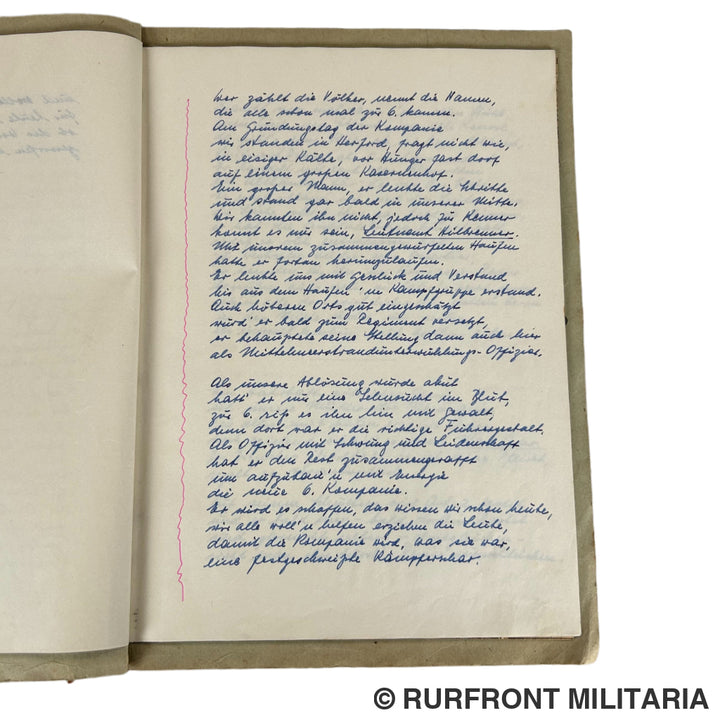 Wer zählt die Völker, nennt die Namen,
die alle schon mal zur 6. kamen.
Am Gründungstag der Kompanie
wir standen in Herford, fragt nicht wie,
in eisiger Kälte, vor Hunger fast dorf
auf einem großen Kasernenhof.
Ein großer Mann, er lenkte die Schritte
und stand gar bald in unserer Mitte.
Wir kannten ihn nicht, jedoch zu Kenner
konnt es nur sein, Leutnant Hilbrenner.
Mit unserem zusammengewürfelten Haufen
hatte er fortan herumzulaufen.
Er lenkte uns mit Geschick und Verstand
bis aus dem Haufen 'ne Kampfgruppe erstand.
Auch höheren Orts gut eingeschätzt
wurd' er bald zum Regiment versetzt,
er behauptete seine Stellung dann auch hier
als Mittelmeerstrandunterwühlungs-Offizier.
Als unsere Ablösung wurde akut
hatt' er nur eine Sehnsucht im Blut,
zur 6. riß es ihn hin mit Gewalt,
denn dort war er die richtige Führergestalt.
Als Offizier mit Schwung und Leidenschaft
hat er den Rest zusammengerafft
um aufzubau'n mit Energie
die neue 6. Kompanie.
Er wird es schaffen, das wissen wir schon heute,
wir alle woll'n helfen erziehen die Leute,
damit die Kompanie wird, was sie war,
eine festgeschweißte Kämpferschar.
© RURFRONT MILITARIA